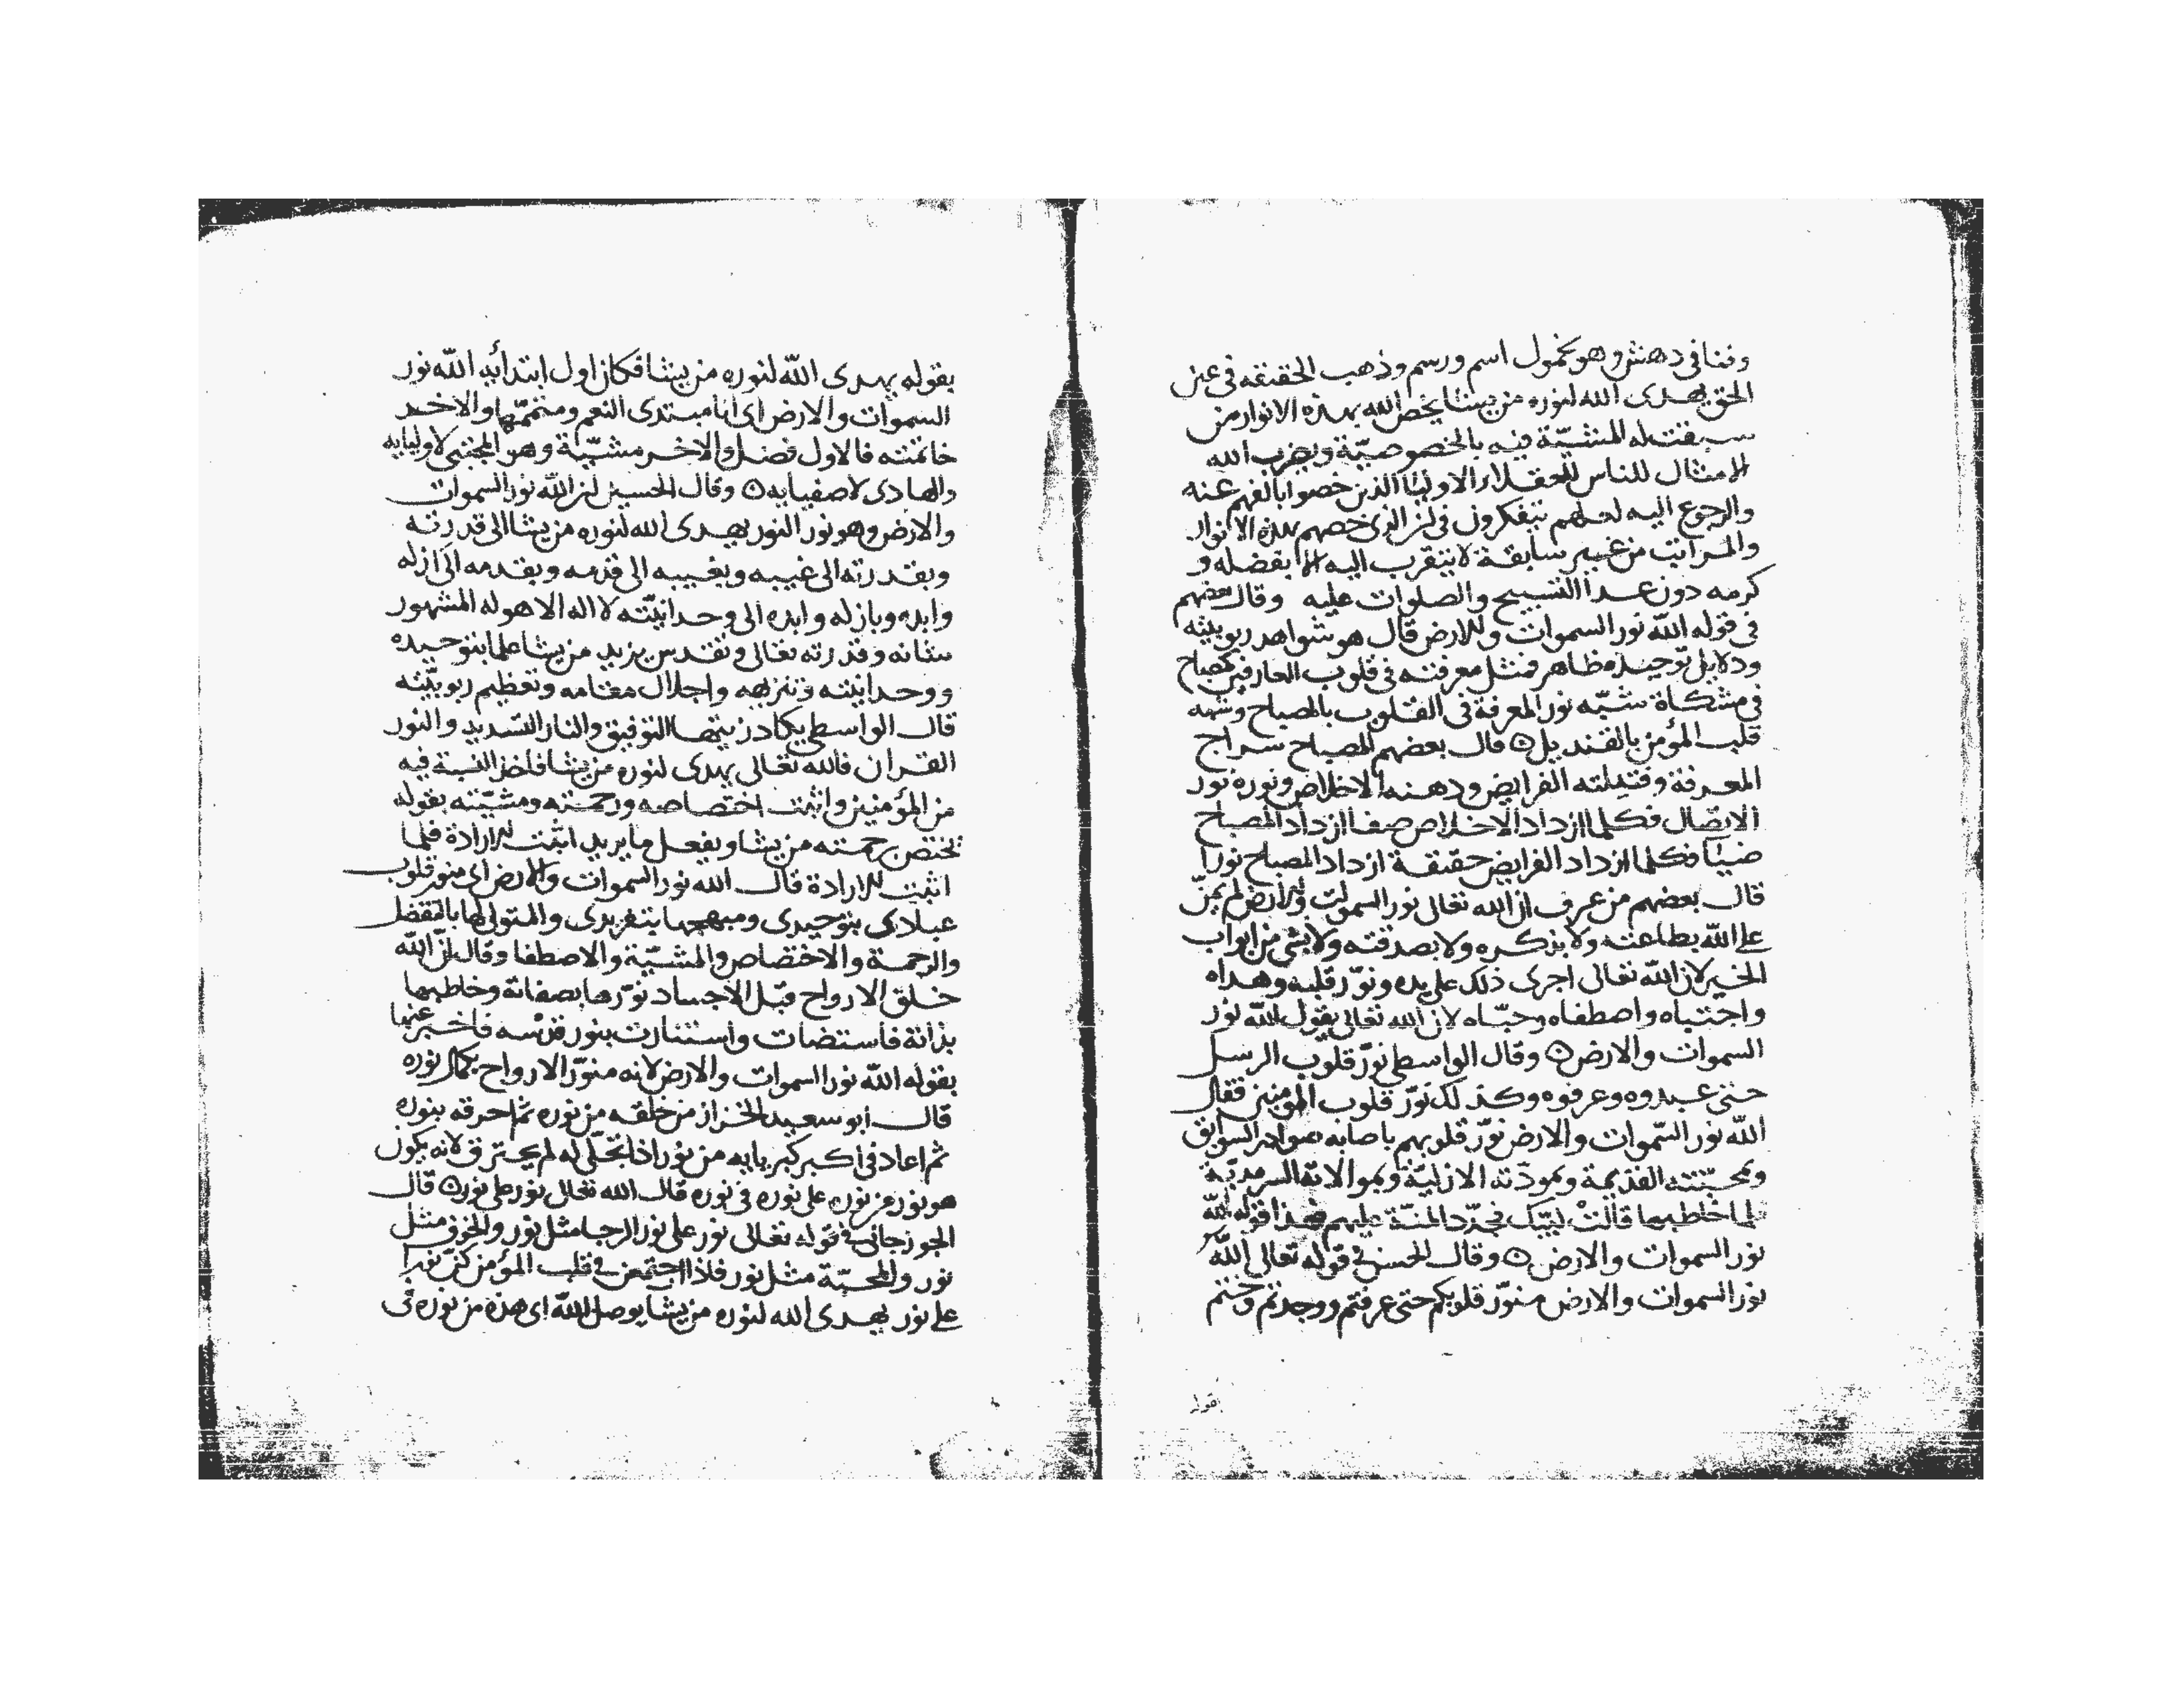 وفنا في دهش وهو بخمول اسم ورسم وذهب الحقيقه في عين
الحق يهدى الله لنوره من يشا يخص الله بهذه الانوار من
سبقت له المشيّة فيه بالخصوصيّة ويضرب الله
الامثال للناس للعقلاء الاوليا الذين خصوا بالفهم عنه
والرجوع اليه لعلهم يتفكرون في ان الذى خصهم بهذه الانوار
والمراتب من غير سابقة لا يتقرب اليه الا بفضله و
كرمه دون عدا التسبيح والصلوات عليه وقال بعضهم
في قوله الله نور السموات والارض قال هو شواهد ربوبيته
ودلايل توحيده ظاهر فمثل معرفته في قلوب العارفين كمصباح
في مشكاة شبّه نور المعرفة في القلوب بالمصباح وشبه
قلب المؤمن بالقنديل ۞ قال بعضهم المصباح سراج
المعرفة وفتيلته الفرايض ودهنه الاخلاص ونوره نور
الاتصال فكلما ازداد الاخلاص صفا ازداد المصباح
ضيا فكلما ازداد الفرايض حقيقة ازداد المصباح نورا
قال بعضهم من عرف ان الله تعالى نور السموات والارض لم يمنّ
على الله بطاعته ولا بذكره ولا بصدقته ولا بشى من ابواب
الخير لان الله تعالى اجرى ذلك على يده ونوّر قلبه وهداه
واجتباه واصطفاه وحبّاه لان الله تعالى يقول الله نور
السموات والارض ۞ وقال الواسطي نوّر قلوب الرسل
حتى عبدوه وعرفوه وكذلك نوّر قلوب المؤمنين فقال
الله نور السّموات والارض نوّر قلوبهم باصابه السوابق
وبمحبّته القديمة وبمودّته الازليّة وبموالاته السرمديّة
لما خاطبها قالتْ لبّيك فجرّد المنّة عليهم فهذا قوله الله
نور السموات والارض ۞ وقال الحسن في قوله تعالى الله
نور السموات والارض منوّر قلوبكم حتى عرفتم ووجدتم وختم
بقوله
بقوله يهدى الله لنوره من يشا فكان اول ابتدائه الله نور
السموات والارض اى انا مبتدى النعم ومتمّمها والاخر
خاتمته فالاول فضل والاخر مشيّة وهو المجتبى لاوليايه
والهادى لاصفيايه ۞ وقال الحسين ان الله نور السموات
والارض وهو نور النور يهدى الله لنوره من يشا الى قدرته
وبقدرته الى غيبه وبغيبه الى قدمه وبقدمه الى ازله
وابده وبازله وابده الى وحدانيّته لا اله الا هو له المشهور
شانه وقدرته تعالى وتقدس يزيد من يشا علما بتوحيده
ووحدانيته وتنزيهه واجلال مقامه وتعظيم ربوبيّته
قال الواسطي يكاد زيتها التوفيق والنار التسديد والنور
القران فالله تعالى يهدى لنوره من يشا فاخذ النسبة فيه
من المؤمنين واثبت اختصاصه ورحمته ومشيّته بقوله
يختص برحمته من يشا ويفعل ما يريد اثبت الارادة فلما
اثبت الارادة قال الله نور السموات والارض اى منور قلوب
عبادى بتوحيدى ومبهجها بتفريدى والمتولى لها بالتفضل
والرحمة والاختصاص والمشيّة والاصطفا وقال انّ الله
خلق الارواح قبل الاجساد نوّرها بصفاته وخاطبها
بذاتة فاستضات واستنارت بنور قدسه فاخبر عنها
بقوله الله نور السموات والارض لانه منوّر الارواح بكمال نوره
قال ابو سعيد الخزاز من خلقه من نوره ثم احرقه بنوره
ثم اعاد في اكبر كبريايه من نور اذا تجلّى له لم يحترق لانه يكون
هو نور عن نوره على نوره في نوره قال الله تعالى نور على نور ۞ قال
الجوزجاني في قوله تعالى نور على نور الرجا مثل نور والخوف مثل
نور والمحبّة مثل نور فاذا اجتمعن في قلب المؤمن كنّ نورا
على نور يهدى الله لنوره من يشا يوصل الله اى هذه من نوره في